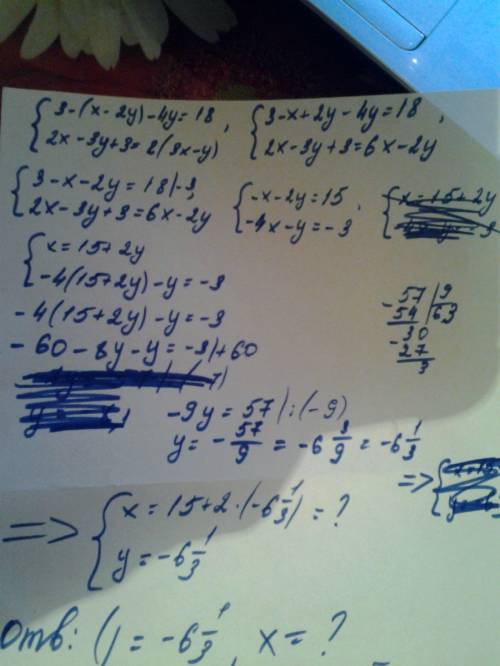 { 3-(x-2y)-4y=18, { 3-x+2y-4y=18,
{ 2x-3y+3=2(3x-y) { 2x-3y+3=6x-2y
{ 3-x-2y=18|-3, { -x-2y=15, { x=15+2y
{ 2x-3y+3=6x-2y { -4x-y=-3
{ x=15+2y
{ -4(15+2y)-y=-3
-4(15+2y)-y=-3
-60-8y-y=-3|+60
-57|9
54|63
-30
27
3
-9y=57|:(-9)
y=-57/9=-6 3/9=-6 1/3
=> { x=15+2·(-6 1/3)=?
{ y=-6 1/3
=> {
Отв: (y=-6 1/3, x=?